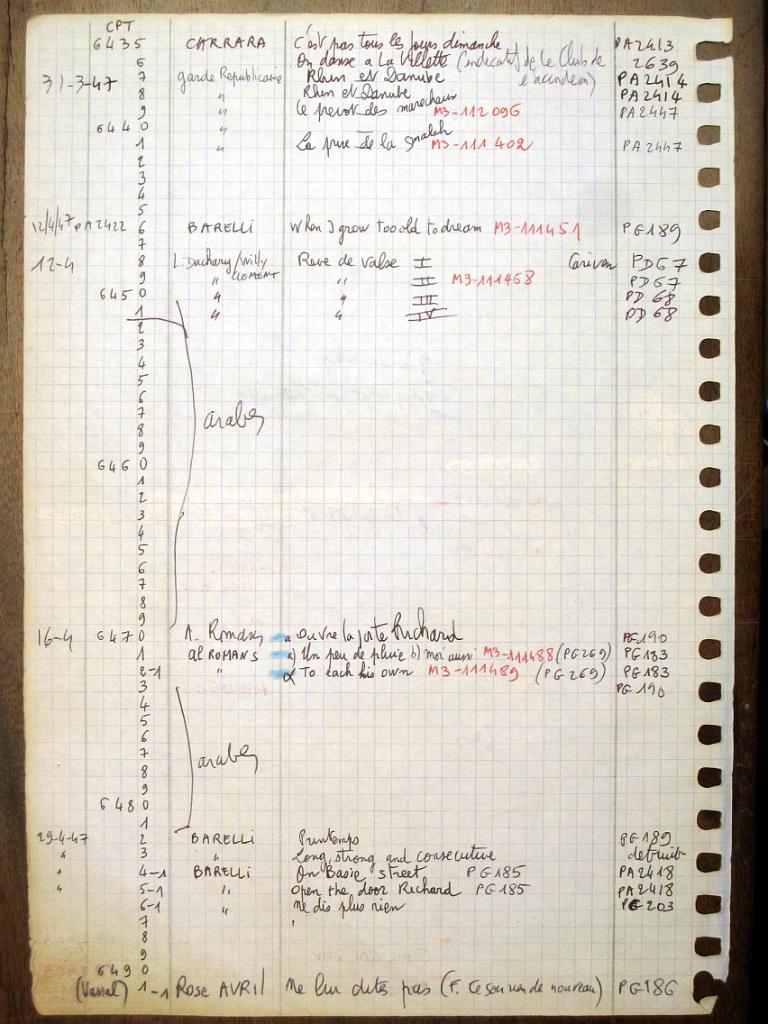 CPT
6435 CARRARA C'est pas tous les jours dimanche PA2413
6 On danse a La Villette (indicatif de le Club de l'accordeon) 2639
31-3-47 7 garde Republicaine Rhin et Danube PA2414
8 " Rhin et Danube PA2414
9 " le prevot des marechaux M3-112096 PA2447
6440 "
1 " La prise de la smalah M3-111402 PA2447
2
3
4
5
12/4/47 PA2422 6 BARELLI When I grow too old to dream M3-111451 PG189
7
12-4 8 L. Dachary/Willy CLEMENT Reve de valse I Cariven PD67
9 " " II M3-111468 PD67
6450 " " III PD68
1 " " IV PD68
2
3
4
5
6
7 arabes
8
9
6460
1
2
3
4
5
6
7
8
9
16-4 6470 A. Romans a Ouvre la porte Richard PG190
1 al ROMANS a) Un peu de pluie b) moi aussi M3-111488 (PG269) PG183
2-1 " α To each his own M3-111489 (PG269) PG183
3 PG190
4
5
6
7 arabes
8
9
6480
1
29-4-47 2 BARELLI Printemps PG189
" 3 " Long, strong and consecutive detruit
" 4-1 BARELLI On Basie street PG185 PA2418
" 5-1 " Open the door Richard PG185 PA2418
6-1 " Ne dis plus rien PG203
7
8
9
6490
(Vassal) 1-1 Rose AVRIL Ne lui dites pas (F. Le souvenir de nouveau) PG186